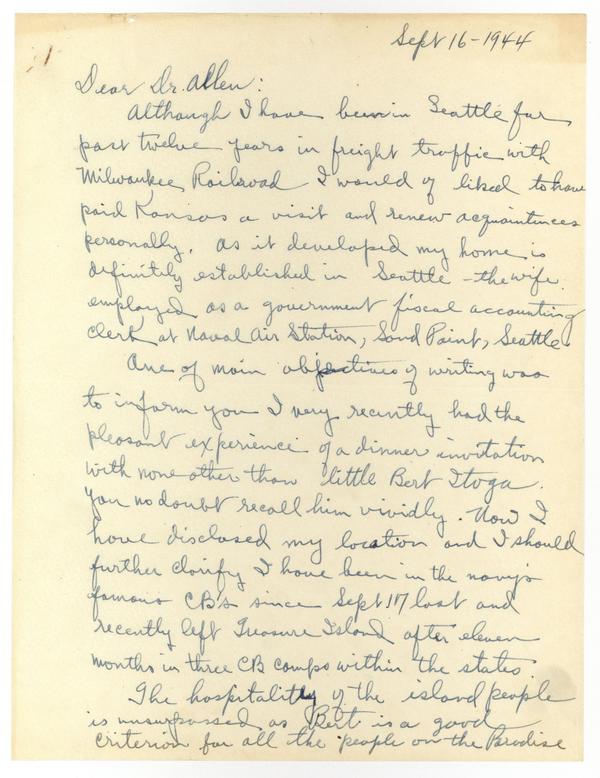 Sept 16-1944
Dear Dr. Allen:
Although I have been in Seattle for
past twelve years in freight traffic with
Milwaukee Railroad I would of liked to have
paid Kansas a visit and renew acquaintances
personally. As it developed my home is
definitely established in Seattle - the wife
employed as a government fiscal accounting
clerk at Naval Air Station, Sand Point, Seattle.
One of main objectives of writing was
to inform you I very recently had the
pleasant experience of a dinner invitation
with none other than little Bert Itoga.
You no doubt recall him vividly. Now I
have disclosed my location and I should
further clarify I have been in the navy's
famous CB's since Sept 17 last and
recently left Treasure Island after eleven
months in three CB camps within the states
The hospitality of the island people
is unsurpassed as Bert is a good
criterion for all the people on the Pardise